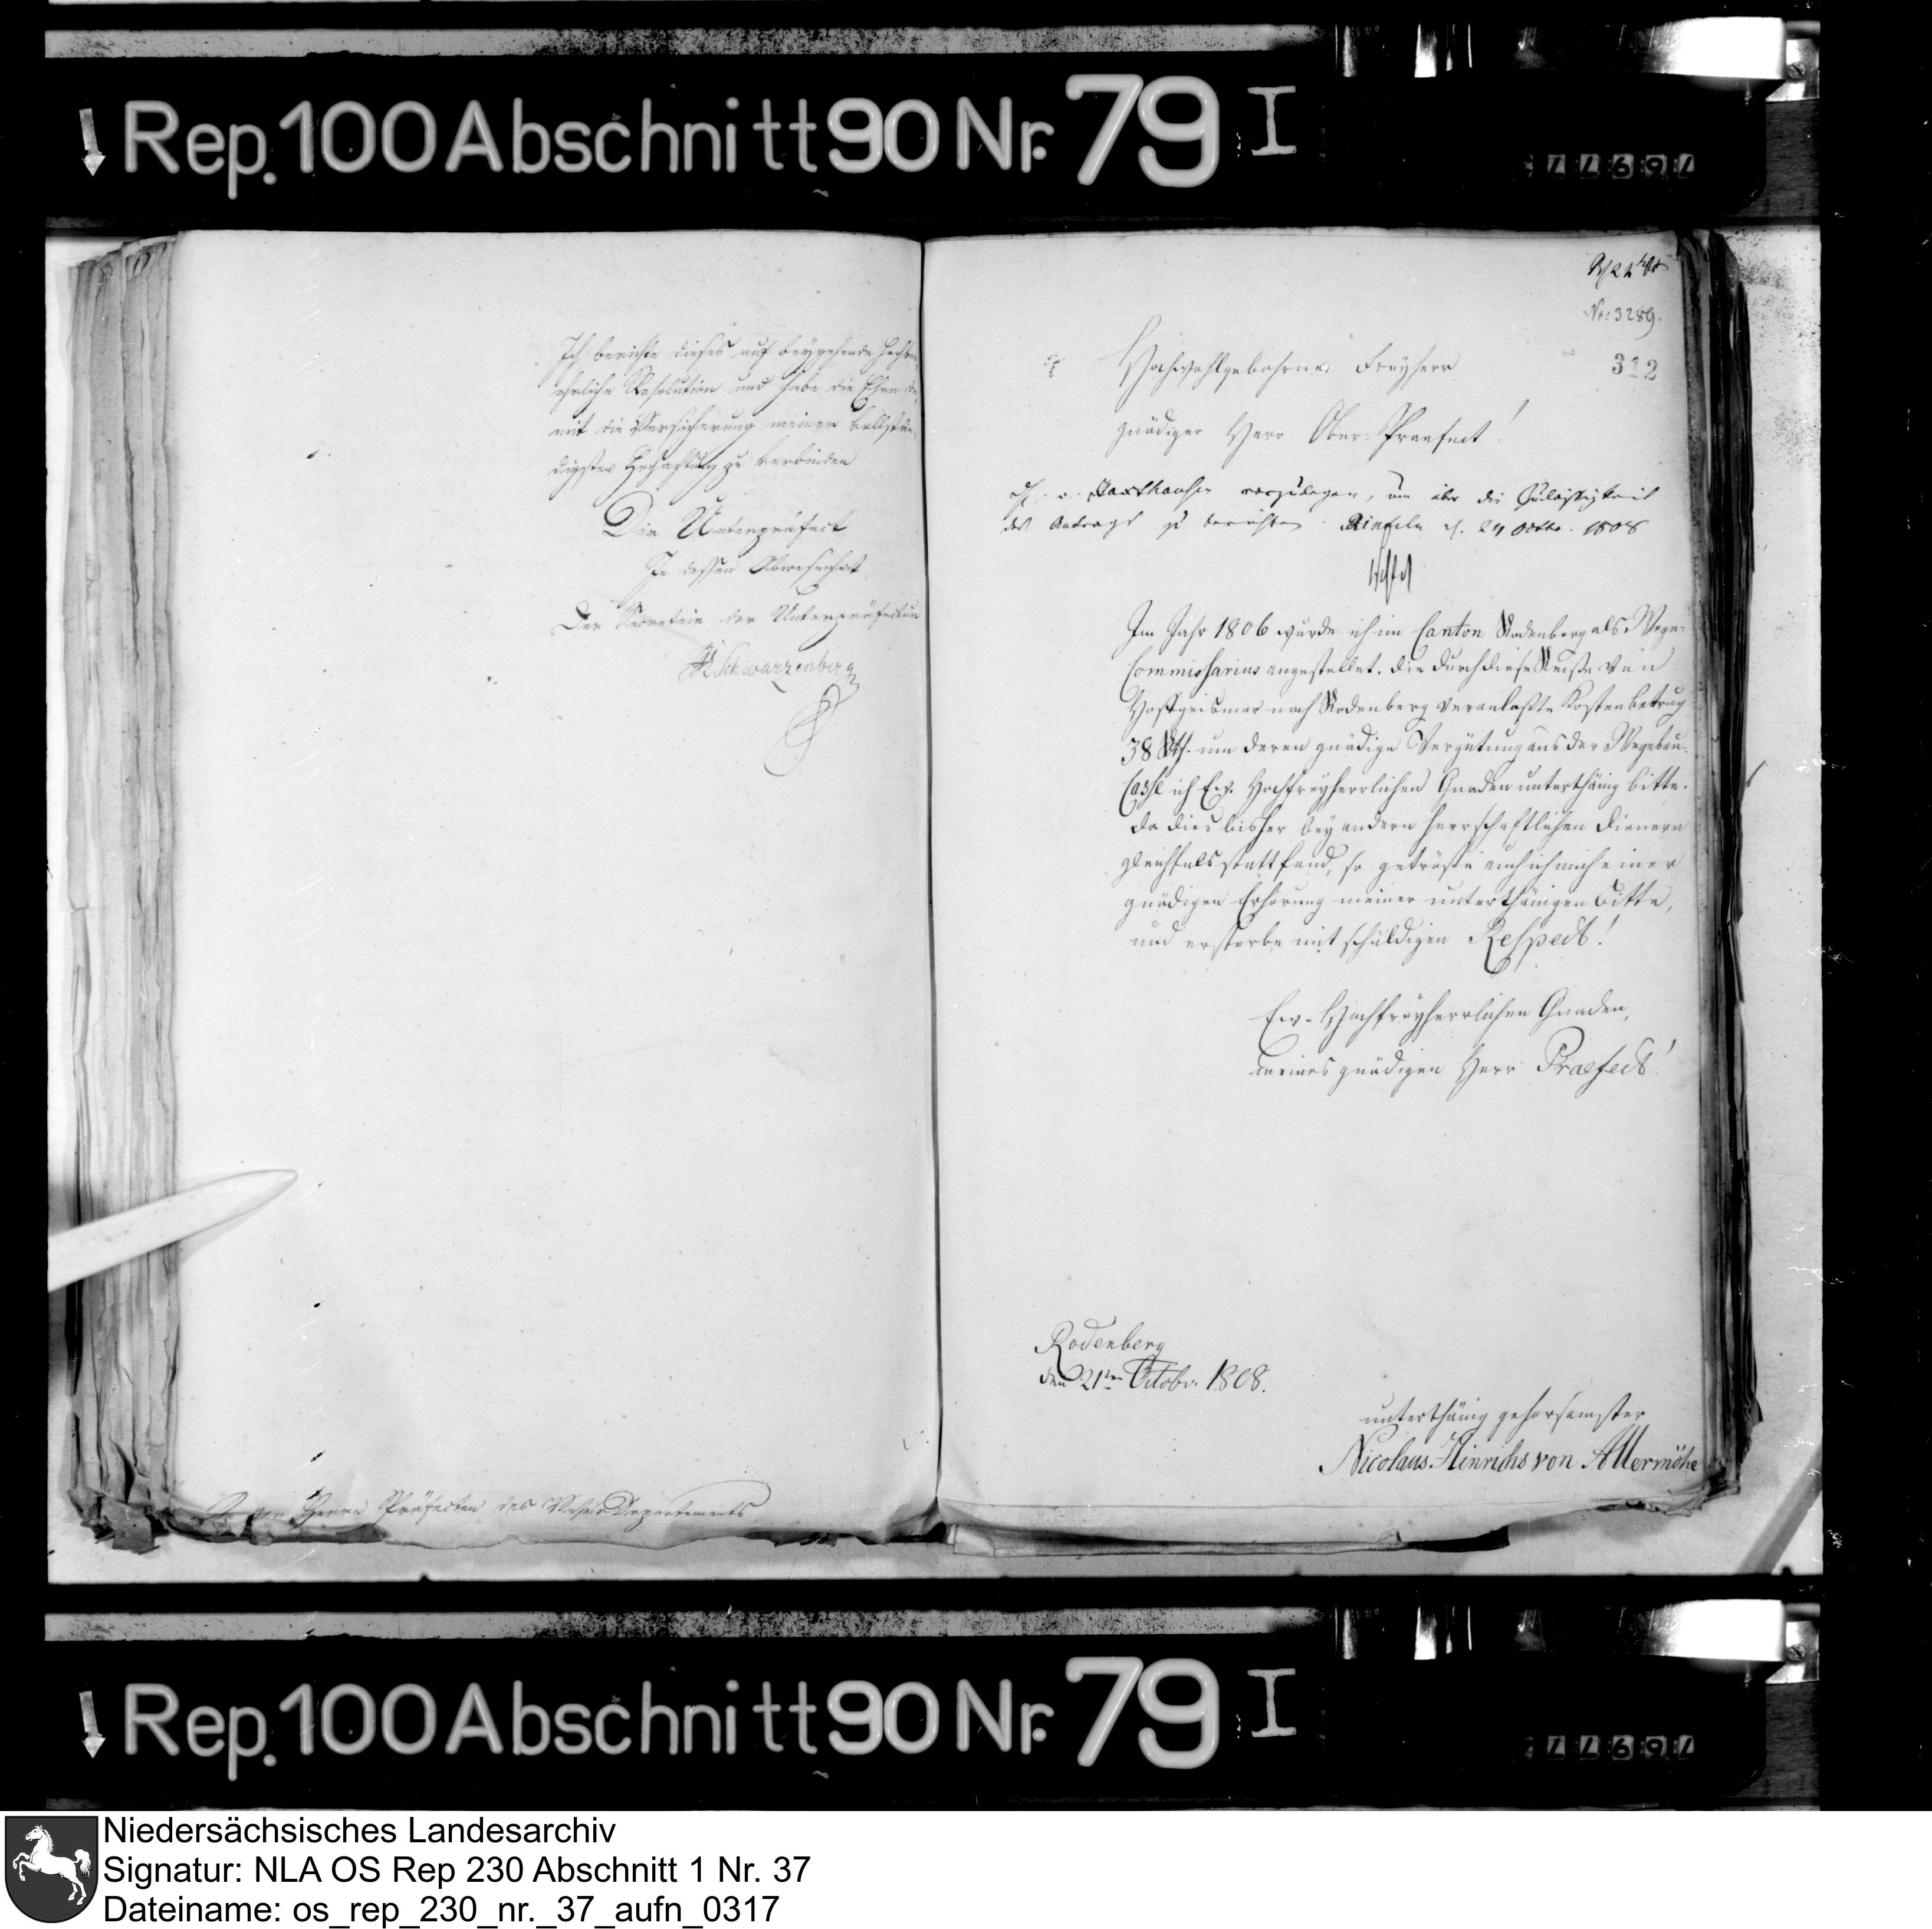 Rep. 100 Abschnitt 90 Nr. 79 I
77697
Ich berichte dieses auf beygehende hochver-
ehrliche Resolution und habe die Ehre da-
mit die Versicherung meiner vollstän-
digsten Hochachtung zu verbinden
Der Unterpräfect
In dessen Abwesenheit
Der Secretair der Unterpräfectur
Schwarzenberg
Herrn Präfecten des Weser Departements
No: 3289.
312
Hochwohlgebohrner Freyherr
gnädiger Herr Ober-Praefect!
H. v. Haxthausen vorzulegen, um über die Zuläßigkeit
des Antrags zu berichten. Rinteln d. 24 Octbr. 1808
Im Jahr 1806 wurde ich im Canton Rodenberg als Wege-
Commissarius angestellet. Die durch diese Reise von
Hofgeismar nach Rodenberg veranlaßte Kosten betrug
38 Rth. um deren gnädige Vergütung aus der Wegebau-
Casse ich Ew. Hochfreyherrlichen Gnaden unterthänig bitte.
Da dies bisher bey andern herrschaftlichen Dienern
gleichfals statt fand, so getröste auch ich mich einer
gnädigen Erhörung meiner unterthänigen Bitte,
und ersterbe mit schuldigen Respect!
Ew. Hochfreyherrlichen Gnaden,
meines gnädigen Herr Praefect!
Rodenberg
den 21ten Octobr. 1808.
unterthänig gehorsamster
Nicolaus Hinrichs von Allermöhe
Rep. 100 Abschnitt 90 Nr. 79 I
77697
Niedersächsisches Landesarchiv
Signatur: NLA OS Rep 230 Abschnitt 1 Nr. 37
Dateiname: os_rep_230_nr._37_aufn_0317